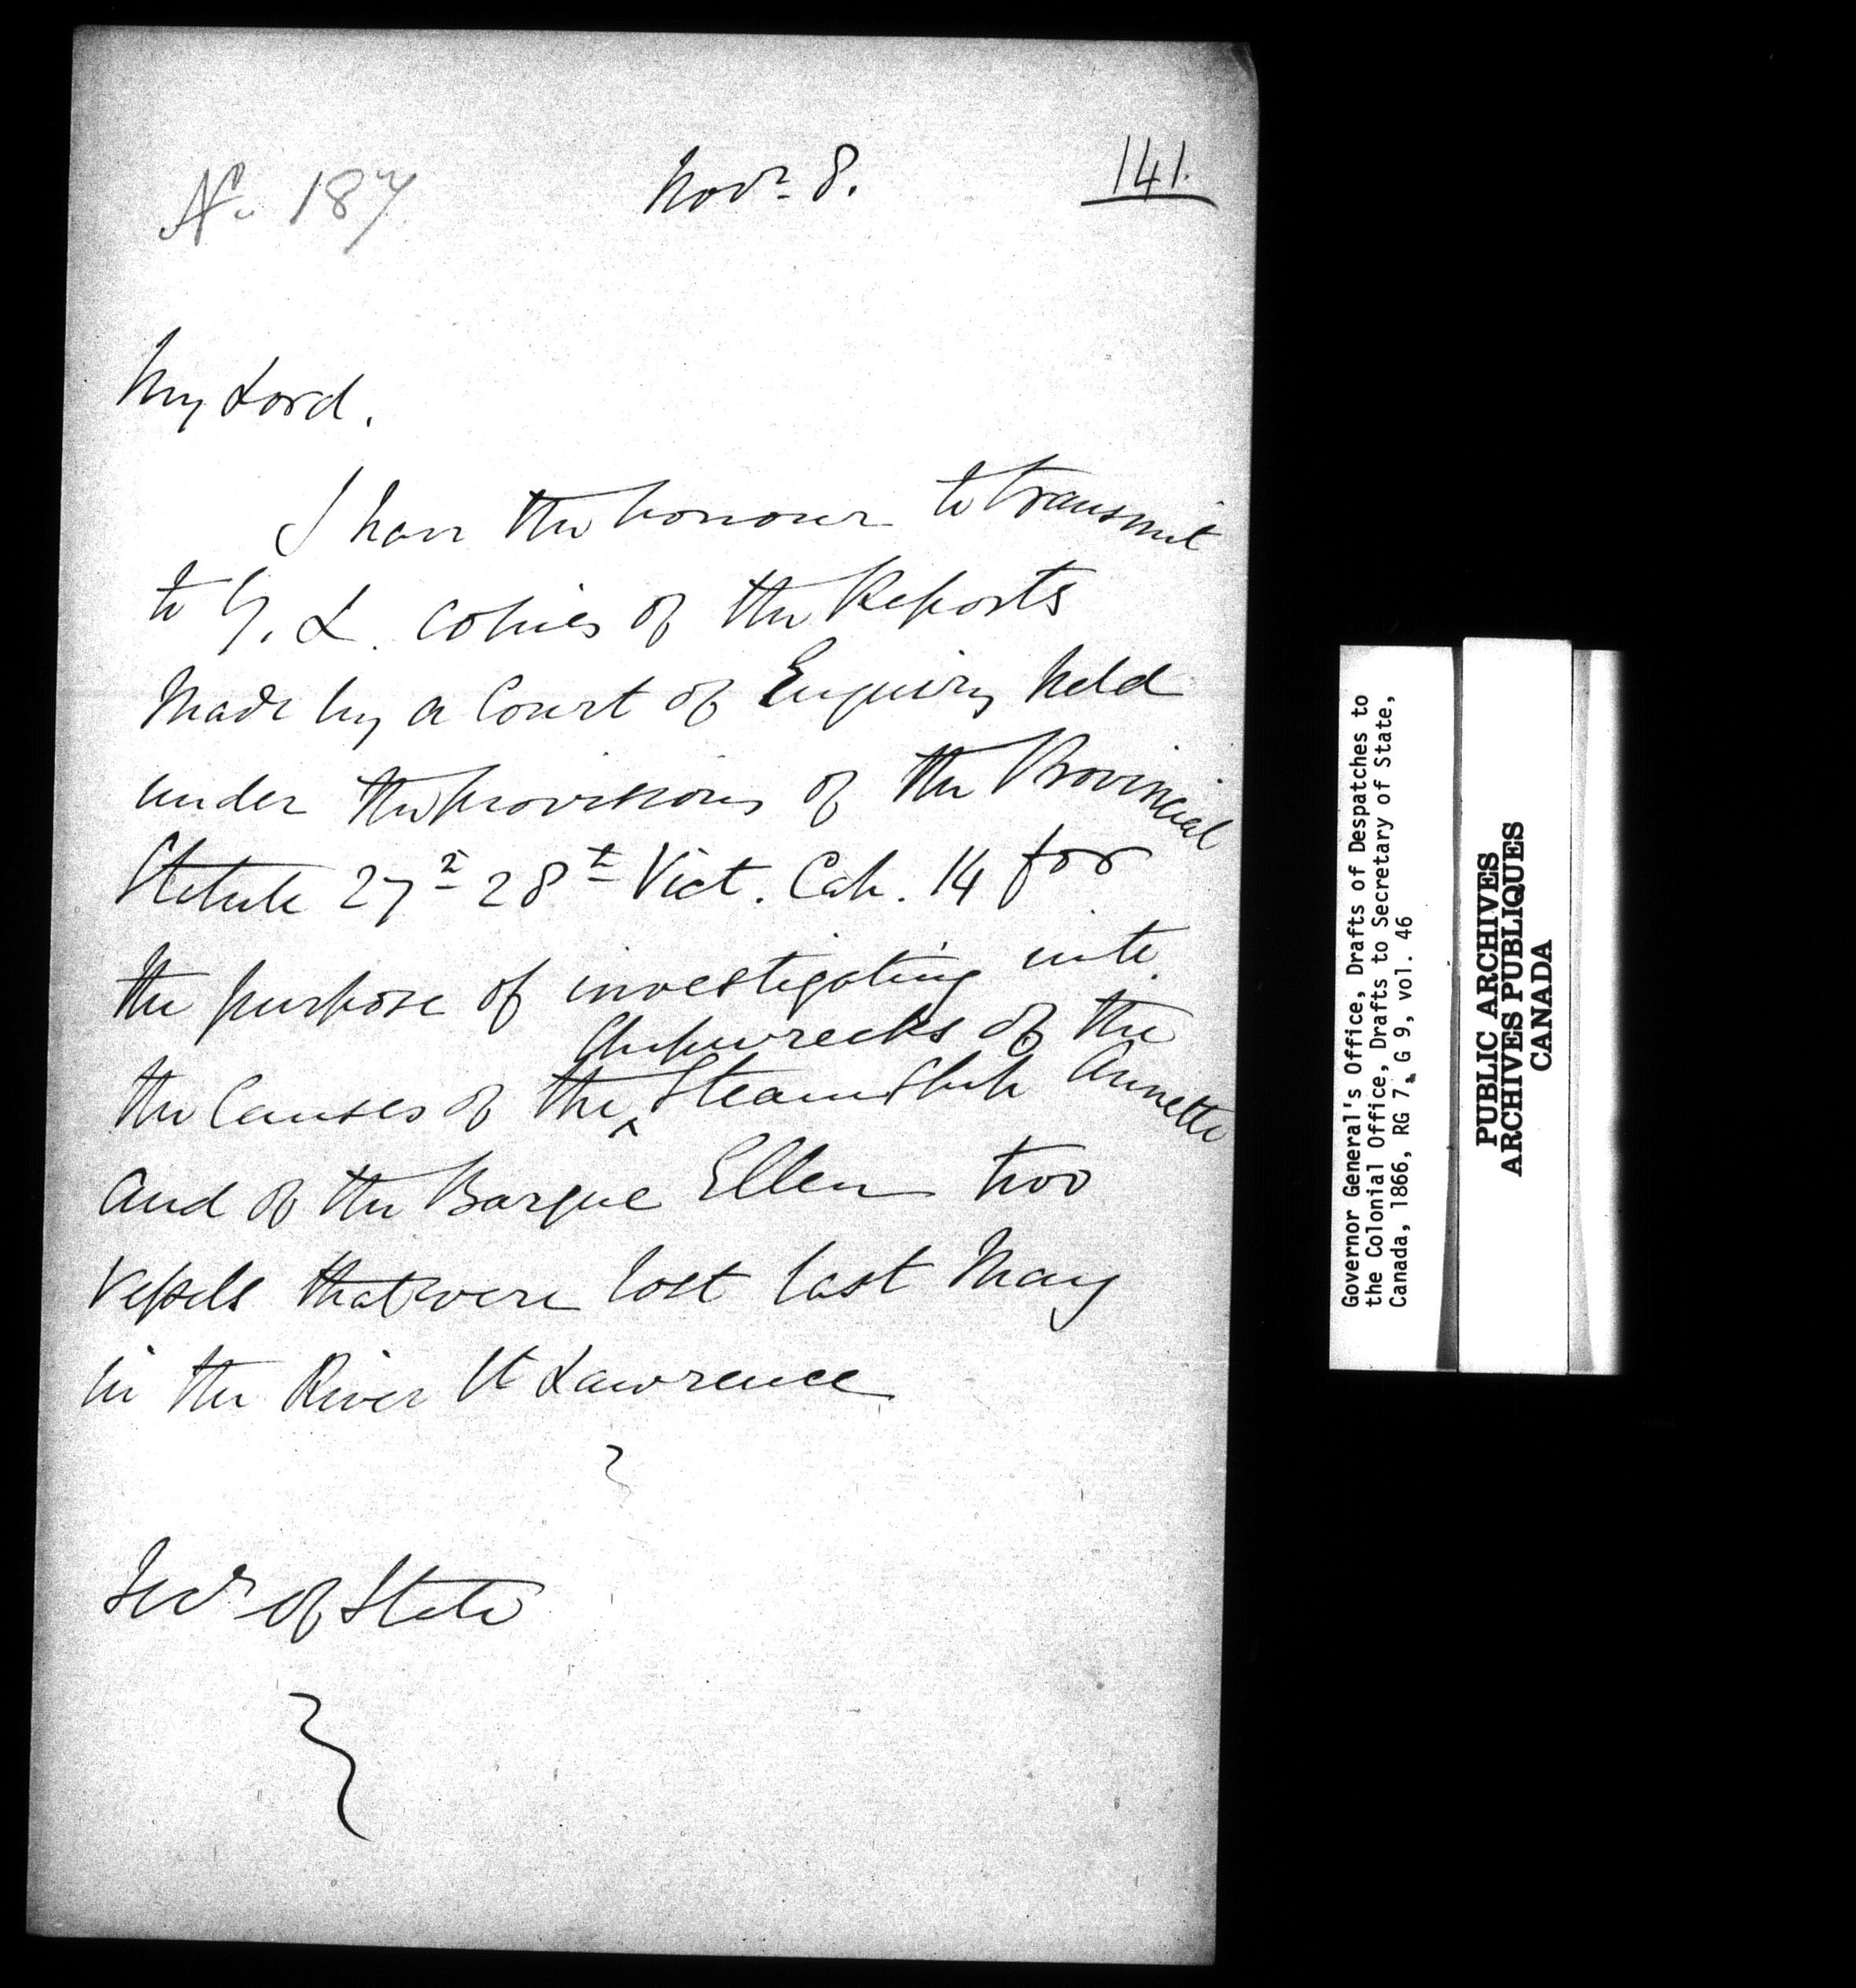 No. 187
Novr. 8.
141.
My Lord.
I have the honour to transmit
to Y. L. copies of the Reports
Made by a Court of Enquiry held
under the provisions of the Provincial
Statute 27th 28th Vict. Cap. 14 for
the purpose of investigating into
the Causes of the ^ Shipwrecks of the Steam Ship Annette
and of the Barque Ellen two
Vessels that were lost last May
in the River St Lawrence
Secr of State
Governor General's Office, Drafts of Despatches to
the Colonial Office, Drafts to Secretary of State,
Canada, 1866, RG 7, G 9, vol. 46
PUBLIC ARCHIVES
ARCHIVES PUBLIQUES
CANADA